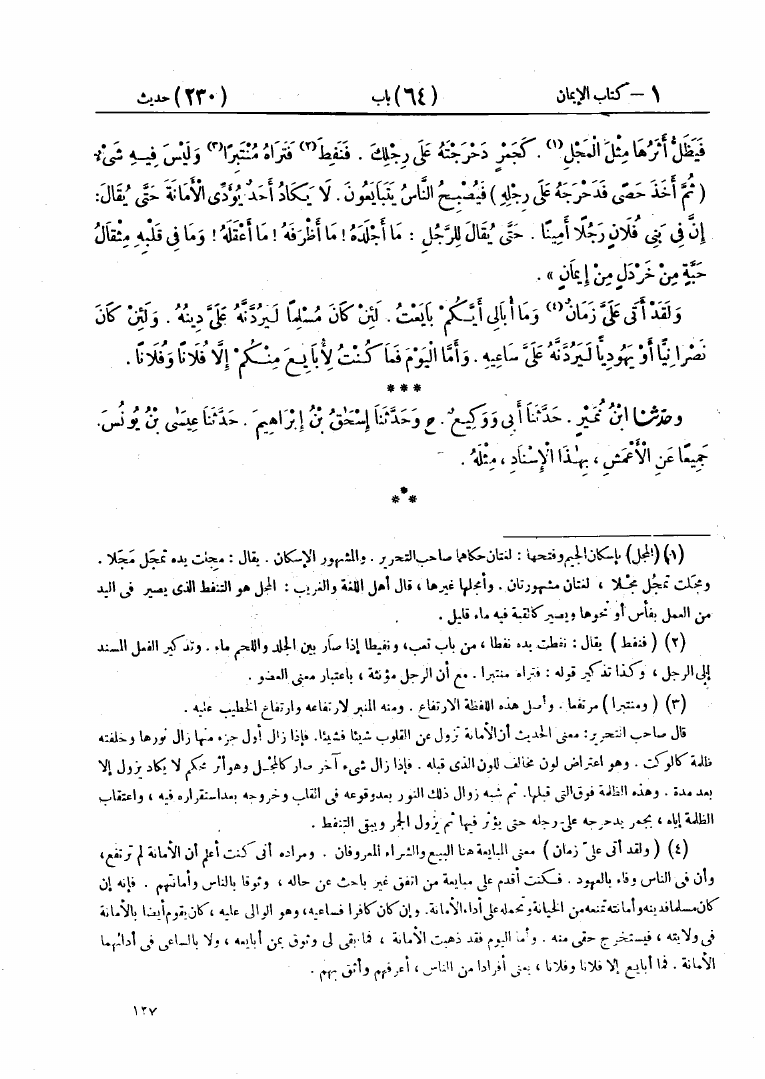 ١ – كتاب الإيمان (٦٤) باب (٢٣٠) حديث
فَيَظَلُّ أَثَرُهَا مِثْلَ الْمَجْلِ(١) . كَجَمْرٍ دَحْرَجْتَهُ عَلَى رِجْلِكَ . فَنَفِطَ(٢) فَتَرَاهُ مُنْتَبِرًا(٣) وَلَيْسَ فِيهِ شَىْءٌ
( ثُمَّ أَخَذَ حَصًى فَدَحْرَجَهُ عَلَى رِجْلِهِ ) فَيُصْبِحُ النَّاسُ يَتَبَايَعُونَ . لَا يَكَادُ أَحَدٌ يُؤَدِّى الْأَمَانَةَ حَتَّى يُقَالَ :
إِنَّ فِى بَنِى فُلَانٍ رَجُلًا أَمِينًا . حَتَّى يُقَالَ لِلرَّجُلِ : مَا أَجْلَدَهُ ! مَا أَظْرَفَهُ ! مَا أَعْقَلَهُ ! وَمَا فِى قَلْبِهِ مِثْقَالُ
حَبَّةٍ مِنْ خَرْدَلٍ مِنْ إِيمَانٍ » .
وَلَقَدْ أَتَى عَلَىَّ زَمَانٌ(٤) وَمَا أُبَالِى أَيَّكُمْ بَايَعْتُ . لَئِنْ كَانَ مُسْلِمًا لَيَرُدَّنَّهُ عَلَىَّ دِينُهُ . وَلَئِنْ كَانَ
نَصْرَانِيًّا أَوْ يَهُودِيًّا لَيَرُدَّنَّهُ عَلَىَّ سَاعِيهِ . وَأَمَّا الْيَوْمَ فَمَا كُنْتُ لِأُبَايِعَ مِنْكُمْ إِلَّا فُلَانًا وَفُلَانًا .
***
وحدّثنا ابْنُ نُمَيْرٍ . حَدَّثَنَا أَبِى وَوَكِيعٌ . ح وَحَدَّثَنَا إِسْحَقُ بْنُ إِبْرَاهِيمَ . حَدَّثَنَا عِيسَى بْنُ يُونُسَ .
جَمِيعًا عَنِ الْأَعْمَشِ ، بِهَذَا الْإِسْنَادِ ، مِثْلَهُ .
***
(١) (المجل) بإسكان الجيم وفتحها : لغتان حكاهما صاحب التحرير . والمشهور الإسكان . يقال : مجلت يده تمجَل مَجَلا .
ومجَلت تمجُل مجْلا ، لغتان مشهورتان . وأمجلها غيرها ، قال أهل اللغة والغريب : المجل هو التنفط الذى يصير فى اليد
من العمل بفأس أو نحوها ويصير كالقبة فيه ماء قليل .
(٢) ( فنفط ) يقال : نفطت يده نفطا ، من باب تعب، ونفيطا إذا صار بين الجلد واللحم ماء . وتذكير الفعل المسند
إلى الرجل ، وكذا تذكير قوله : فتراه منتبرا . مع أن الرجل مؤنثة ، باعتبار معنى العضو .
(٣) ( ومنتبرا ) مرتفعا . وأصل هذه اللفظة الارتفاع . ومنه المنبر لارتفاعه وارتفاع الخطيب عليه .
قال صاحب التحرير: معنى الحديث أن الأمانة تزول عن القلوب شيئا فشيئا. فإذا زال أول جزء منها زال نورها وخلفته
ظلمة كالوكت . وهو اعتراض لون مخالف للون الذى قبله . فإذا زال شىء آخر صار كالمجل وهو أثر محكم لا يكاد يزول إلا
بعد مدة . وهذه الظلمة فوق التى قبلها. ثم شبه زوال ذلك النور بعد وقوعه فى القلب وخروجه بعد استقراره فيه ، واعتقاب
الظلمة إياه ، بجمر يدحرجه على رجله حتى يؤثر فيها ثم يزول الجمر ويبقى التنفط .
(٤) ( ولقد أتى علىّ زمان ) معنى المبايعة هنا البيع والشراء المعروفان . ومراده أنى كنت أعلم أن الأمانة لم ترتفع ،
وأن فى الناس وفاء بالعهود . فكنت أقدم على مبايعة من اتفق غير باحث عن حاله ، وثوقا بالناس وأمانتهم . فإنه إن
كان مسلما فدينه وأمانته تمنعه من الخيانة وتحمله على أداء الأمانة. وإن كان كافرا فساعيه، وهو الوالى عليه ، كان يقوم أيضا بالأمانة
فى ولايته ، فيستخرج حقى منه . وأما اليوم فقد ذهبت الأمانة ، فما بقى لى وثوق بمن أبايعه ، ولا بالساعى فى أدائهما
الأمانة . فما أبايع إلا فلانا وفلانا ، يعنى أفرادا من الناس ، أعرفهم وأثق بهم .
١٢٧